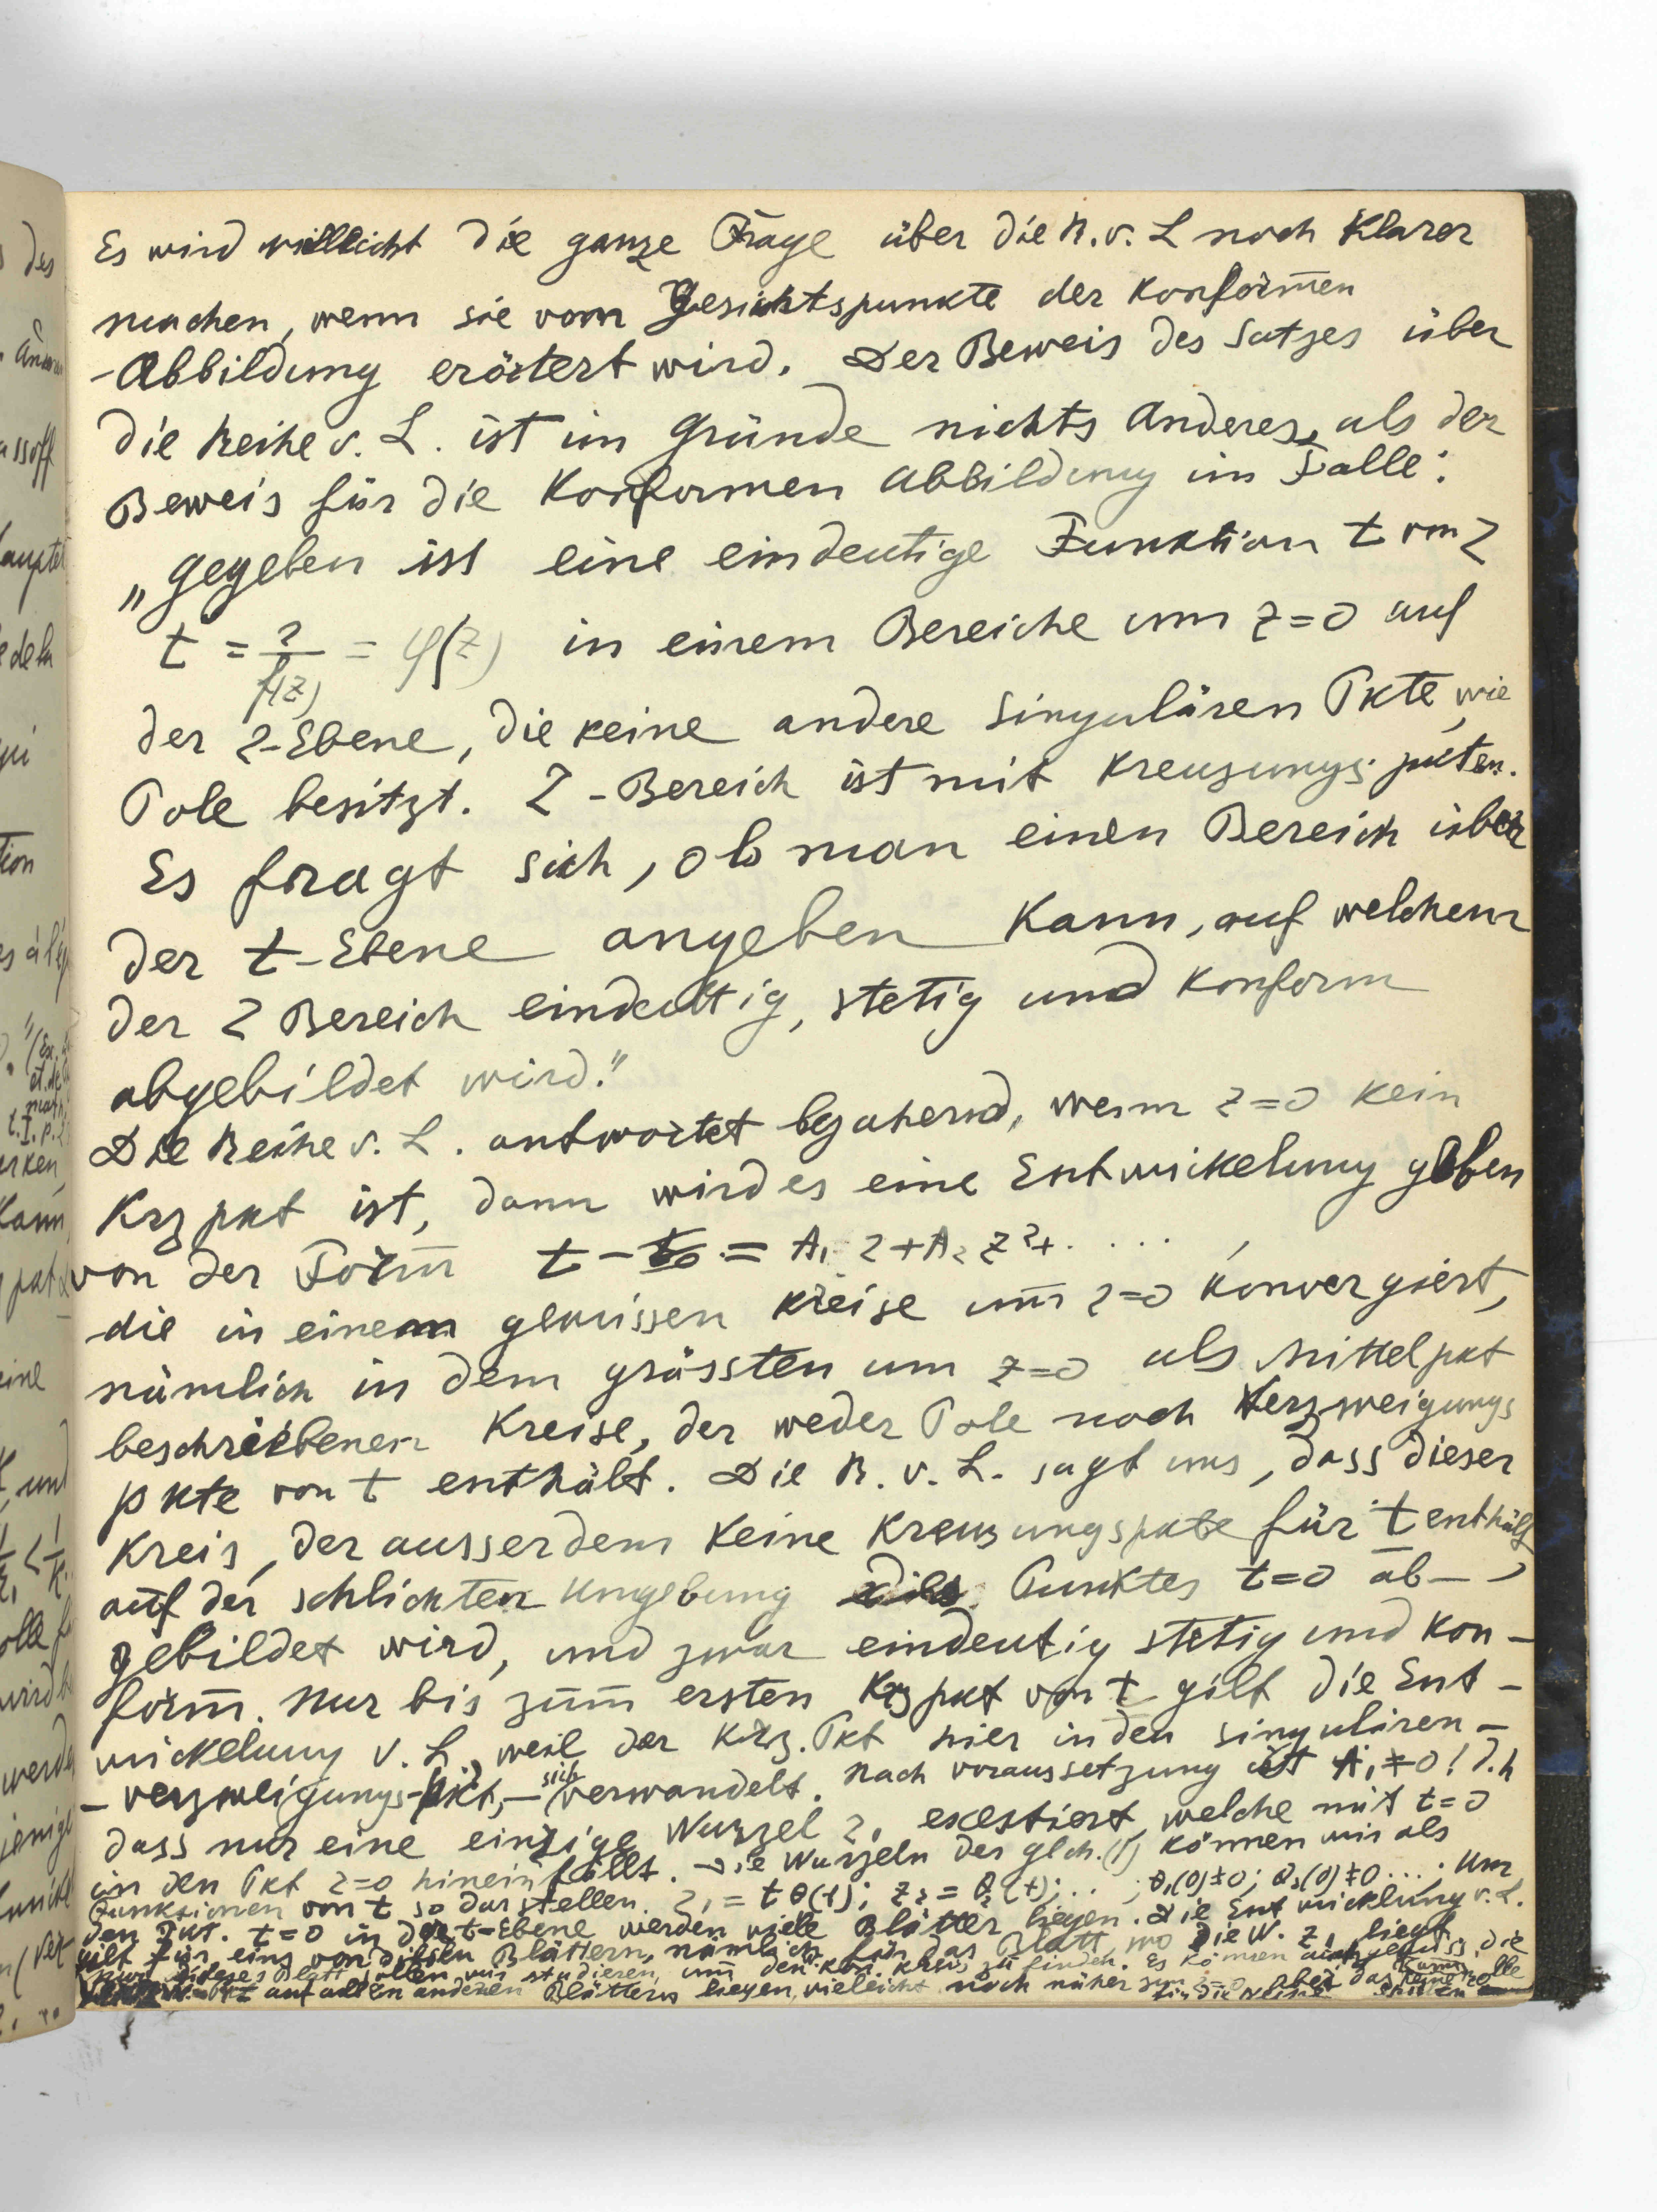 Es wird vielleicht die ganze Frage über die R. v. L noch klarer
machen, wenn sie vom Gesichtspunkte der konformen
-Abbildung erörtert wird. Der Beweis des Satzes über
die Reihe v. L. ist im Grunde nichts Anderes, als der
Beweis für die konformen Abbildung im Falle:
„Gegeben ist eine eindeutige Funktion t von z
t = z/f(z) = φ(z) in einem Bereiche um z=0 auf
der z-Ebene, die keine andere singulären Pkte, wie
Pole besitzt. Z-Bereich ist mit Kreuzungspkten.
Es fragt sich, ob man einen Bereich über
der t-Ebene angeben kann, auf welchem
der z Bereich eindeutig, stetig und konform
abgebildet wird."
Die Reihe v. L. antwortet bejahend, wenn z=0 kein
Krzpkt ist, dann wird es eine Entwickelung geben
von der Form t - t₀ = A₁ z + A₂ z² + ....,
die in einem gewissen Kreise um z=0 konvergiert,
nämlich in dem grössten um z=0 als Mittelpkt
beschriebenen Kreise, der weder Pole noch Verzweigungs
pkte von t enthält. Die R. v. L. sagt uns, dass dieser
Kreis, der ausserdem keine Kreuzungspkte für t enthält,
auf der schlichten Umgebung des Punktes t=0 ab-
gebildet wird, und zwar eindeutig stetig und kon-
form. Nur bis zum ersten Krzpkt von t gilt die Ent-
wickelung v. L, weil der Krz. Pkt hier in den singulären-
- verzweigungs-pkt, - sich verwandelt. Nach voraussetzung ist A₁ ≠ 0! d.h
dass nur eine einzige Wurzel z₁ existiert, welche mit t=0
in den Pkt z=0 hineinfällt. Die Wurzeln der glch. (1) können wir als
Funktionen von t so darstellen. z₁ = t θ(t); z₂ = θ₂(t); ..; θ₁(0)≠0; θ₂(0)≠0 ...; Um
den Pkt. t=0 in der t-Ebene werden viele Blätter liegen. Die Entwicklung v. L.
gilt für eins von diesen Blättern, nämlich für das Blatt, wo die W. z₁ liegt.
Nur dieses Blatt sollen wir studieren, um den kon. Kreis zu finden. Es können auch gewiss, die
auf allen anderen Blättern liegen, vieleicht noch näher zum z=0, aber das kann